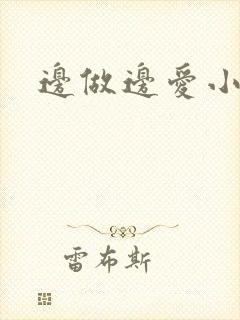 邊做邊愛小
雷布斯